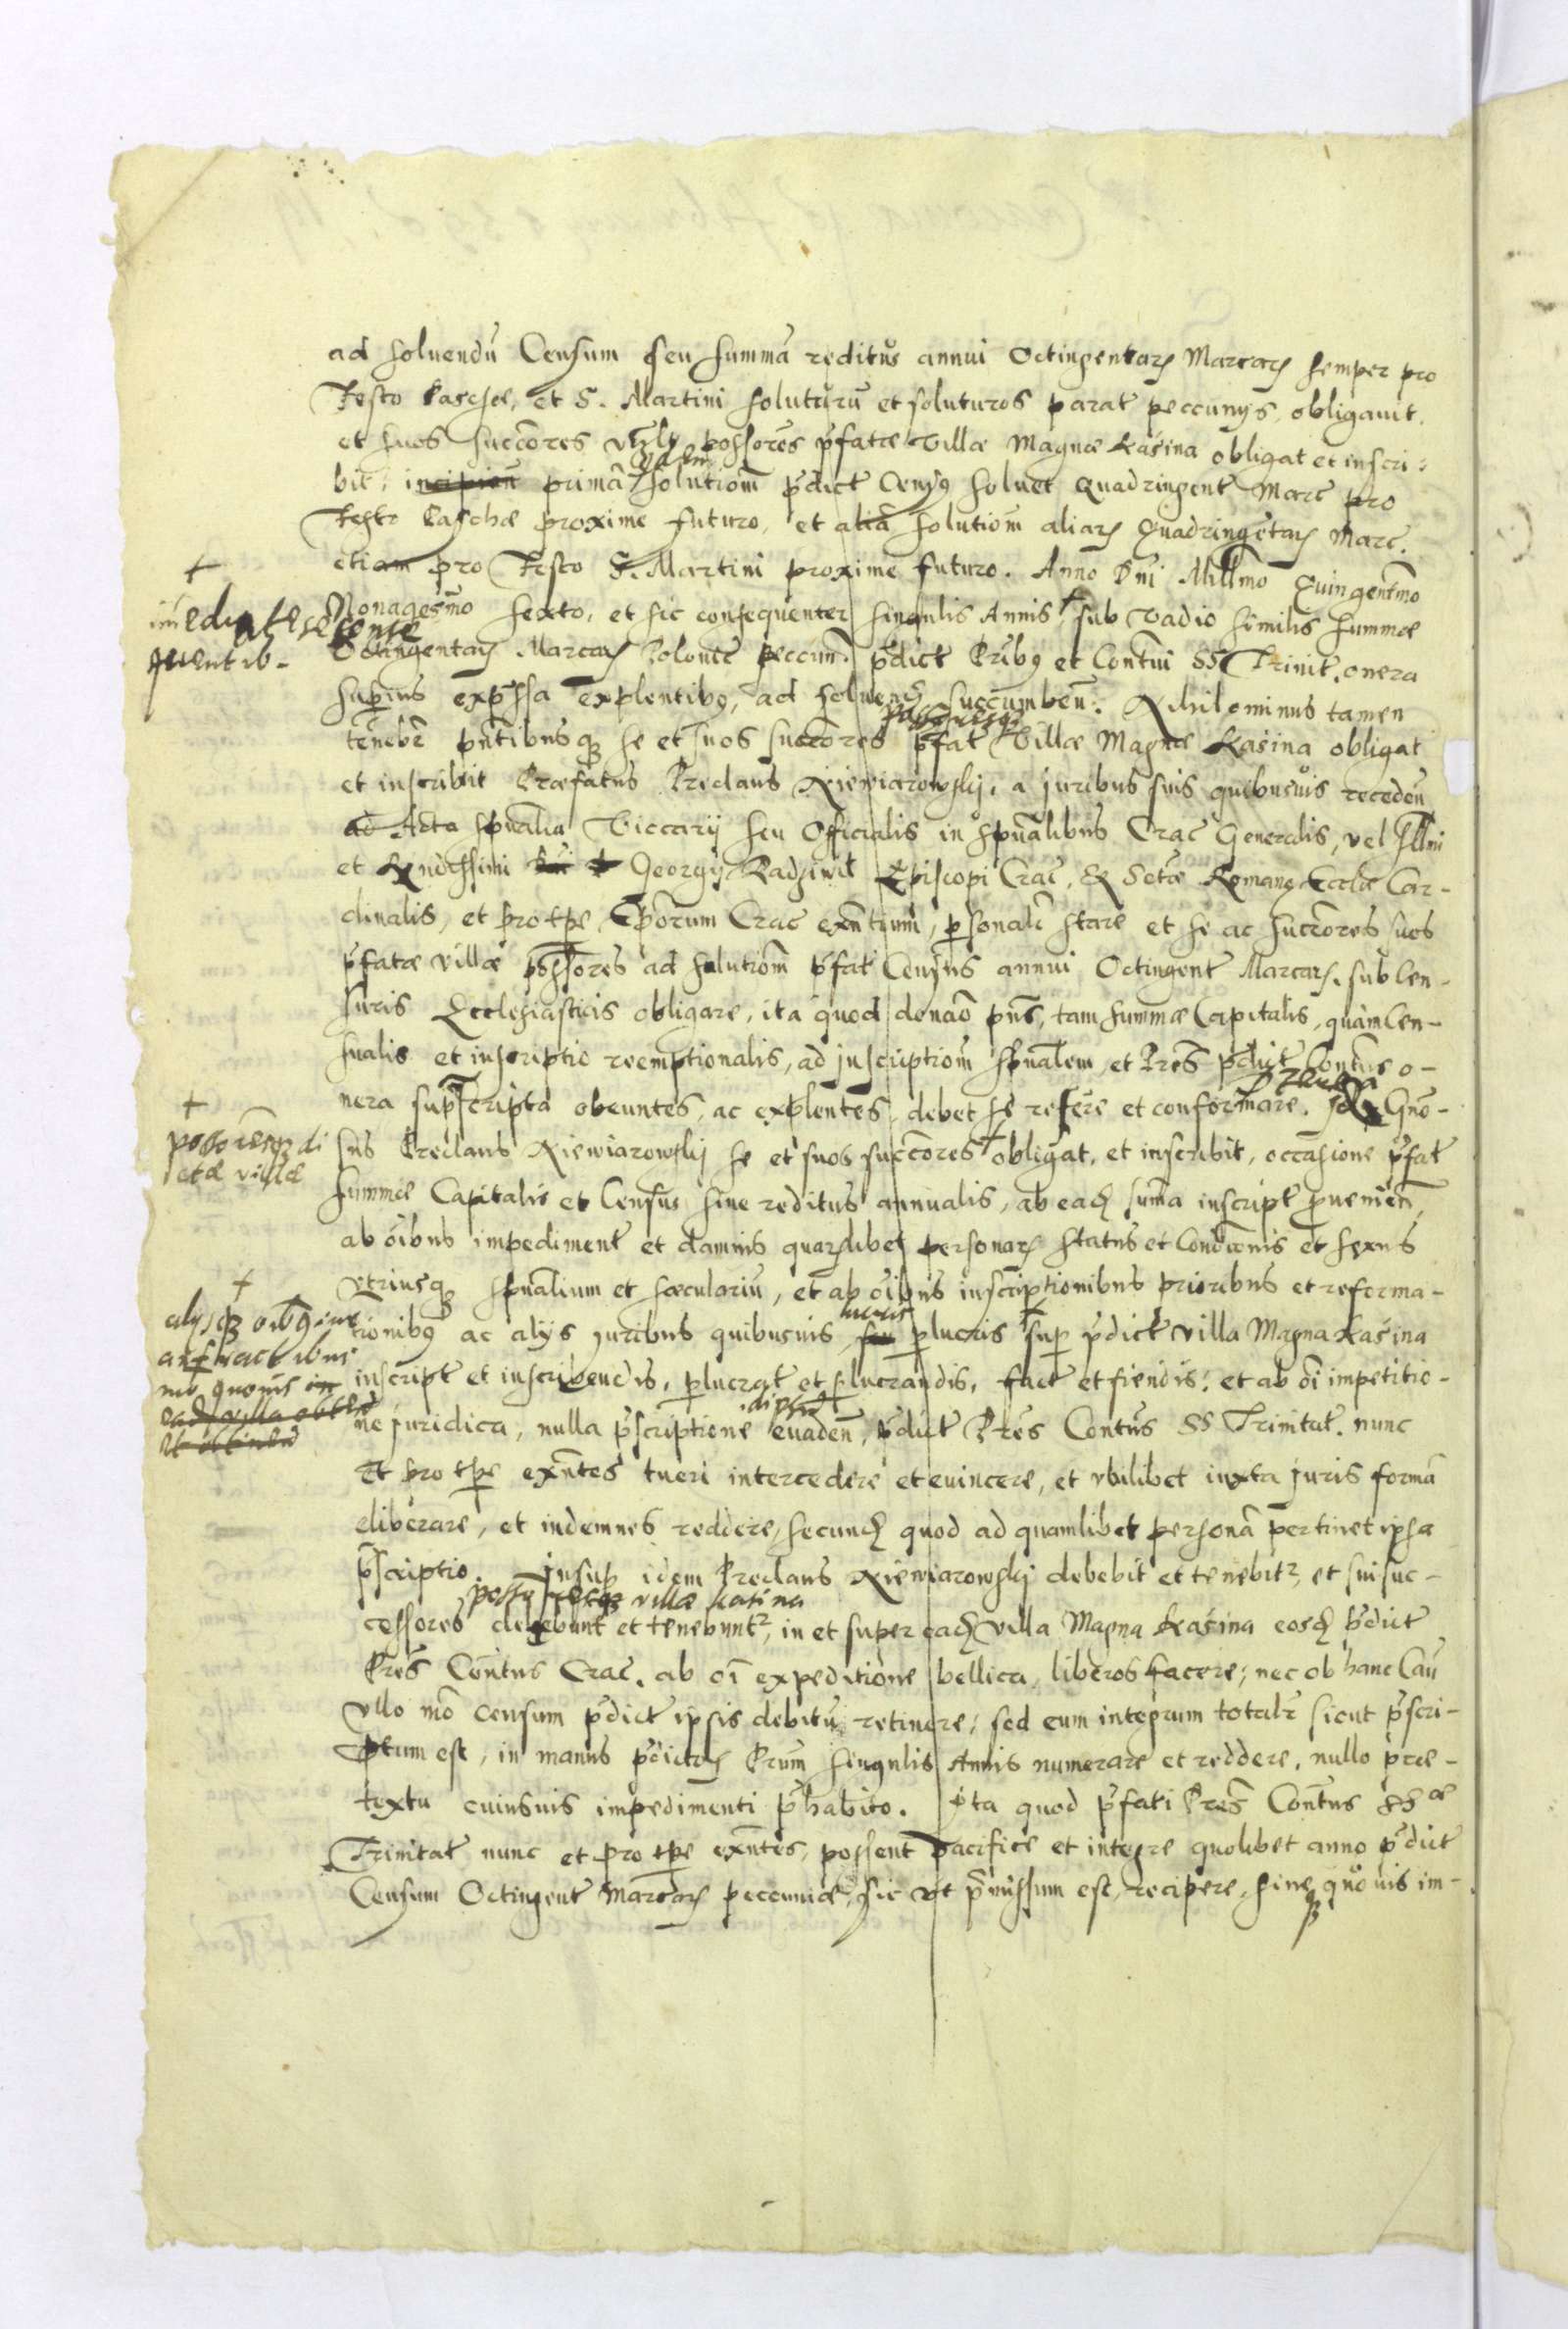 ad soluendū Censum seu summā reditus annui Octingentarꝫ Marcarꝫ semper pro
Festo Paschæ, et S. Martini soluturū et soluturos parat̃ peccunijs, obligauit.
et suos succōres possōres p̄fatæ Villæ Magnæ Kasina obligat et inscri:
bit; incipień primā solutiōm p̄dict̃ Censꝰ soluet Quadringent̃ Marc̃ pro
Festo Paschæ proxime futuro, et aliā solutiōm aliarꝫ Quadringētarꝫ Marc.
etiam pro Festo S. Martini proxime futuro. Anno Dn̄i Mill̄mo Quingent̄mo
+
im̄ediate se conse
quentib-
Nonagesimo sexto, et sic consequenter singulis Annis + sub Vadio similis summæ
Octingentarꝫ Marcarꝫ Polonic̃ peccun. p̄dict̃ Prībꝰ et Conṽtui SS Trinit. onera
superius exp̄ssa explentibꝰ, ad soluendꝫ succumbeń. Nihilominus tamen
possoresqꝫ
teneb̃r pn̄tibusqꝫ se et suos succōres p̄fat̃ Villæ Magnæ Kasina obligat
et inscribit Præfatus Preclaus Niewiarowskj, a juribus suis quibusuis recedeń
ad Acta spūalia Viccarij seu Officialis in spūalibus Crac̃ Generalis, vel Ill̄mi
et Rn̄dissimi Georgij Radziwil Episcopi Crac̃, S. Sctæ Romanę Eccl̄æ Car-
dinalis, et pro tp̄e Ep̄orum Crac̃ exn̄tium, personal̃r stare et se ac succōres suos
p̄fatæ villæ possōres ad solutiōm p̄fat̃ Census annui Octingent̃ Marcarꝫ. sub Cen-
suris Ecclesiasticis obligare, ita quod donāo pn̄s, tam summæ Capitalis, quàm Cen-
sualis et inscriptio reemptionalis, ad inscriptiōm spūalem, et Pr̄es p̄dict̃ Conṽtus o-
nera suprascripta obeuntes, ac explentes, debet se refere et conformare. Gn̄o-
+
possoresqꝫ di
ctæ villæ
sus Preclaus Niewiarowskj se et suos succōres + obligat, et inscribit, occasione p̄fat̃
summæ Capitalis et Census siue reditus annualis, ab eadꝫ sum̄a inscript̃ prouenień,
ab oībus impediment̃ et damnis quarꝫlibet personarꝫ status et Conditionis et sexus
Vtriusqꝫ spūalium et sæculariū, et ab oībus inscriptionibus prioribus et reforma-
+
alijsqꝫ oībꝰ
lucris
tionibꝰ ac alijs juribus quibusuis seu perlucris + sup p̄dict̃ villa Magna Kasina
inscript̃ et inscribendis, perlucrat̃ et perlucrandis, fact̃ et fiendis; et ab oī impetitio-
ne juridica, nulla p̄scriptione euadeń, p̄dict̃ Pr̄es Conṽtus SS Trinitat̃. nunc
et pro tp̄e exn̄tes tueri intercedere et euincere, et vbilibet iuxta juris formā
eliberare, et indemnes reddere, secundꝫ quod ad quamlibet personā pertinet ipsa
p̄scriptio. Insup idem Preclaus Niewiarowskj debebit et tenebit̃r, et sui suc-
possessoresqꝫ villæ Kasina
cessores debebunt et tenebunt̃r, in et super eadꝫ villa Magna Kasina eosdꝫ p̄dict̃
Pr̄es Conṽtus Crac̃. ab oī expeditione bellica, liberos facere; nec ob hanc Cau
vllo mō Censum p̄dict̃ ipsis debitū retinere; sed eum integrum totalr̃ sicut p̄scri-
ptum est, in manus p̄dictorꝫ Prum singulis Annis numerare et reddere, nullo præ-
textu cuiusuis impedimenti p̄habito. Ita quod p̄fati Pr̄es Conṽtus SSæ
Trinitat̃ nunc et pro tp̄e exn̄tes, possent pacifice et integre quolibet anno p̄dict̃
Censum Octingent̃ Marcarꝫ peccuniæ, sic vt p̄missum est, recipere, sine quouis im-